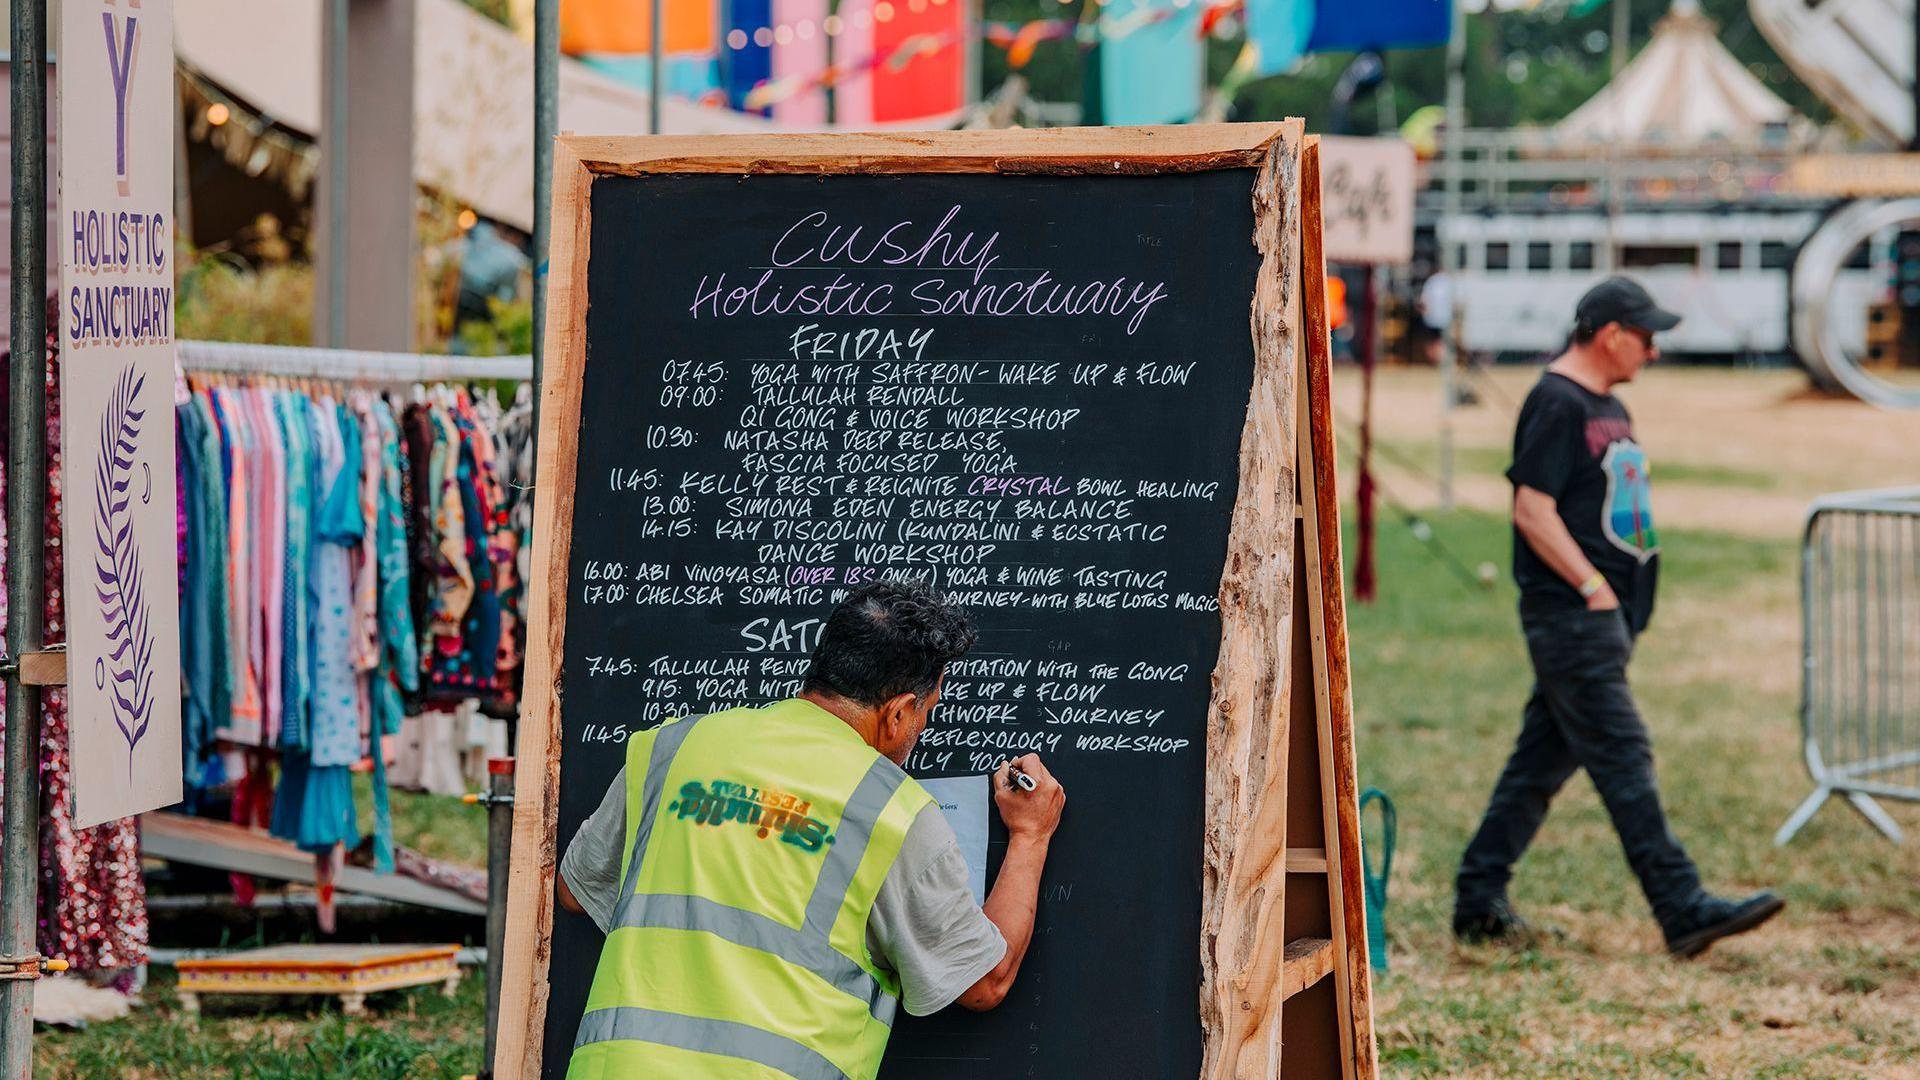 Y
HOLISTIC
SANCTUARY
Cushy
Holistic Sanctuary
TITLE
FRIDAY
07.45: YOGA WITH SAFFRON - WAKE UP & FLOW
09.00: TALLULAH RENDALL
QI GONG & VOICE WORKSHOP
10.30: NATASHA DEEP RELEASE,
FASCIA FOCUSED YOGA
11.45: KELLY REST & REIGNITE CRYSTAL BOWL HEALING
13.00: SIMONA EDEN ENERGY BALANCE
14.15: KAY DISCOLINI (KUNDALINI & ECSTATIC
DANCE WORKSHOP
16.00: ABI VINOYASA (OVER 18'S ONLY) YOGA & WINE TASTING
17.00: CHELSEA SOMATIC JOURNEY - WITH BLUE LOTUS MAGIC
SAT
GAP
7.45: TALLULAH REND EDITATION WITH THE GONG
9.15: YOGA WITH KE UP & FLOW
10.30: THWORK JOURNEY
11.45: REFLEXOLOGY WORKSHOP
ILY YOG
Shindig
FESTIVAL
Cafe